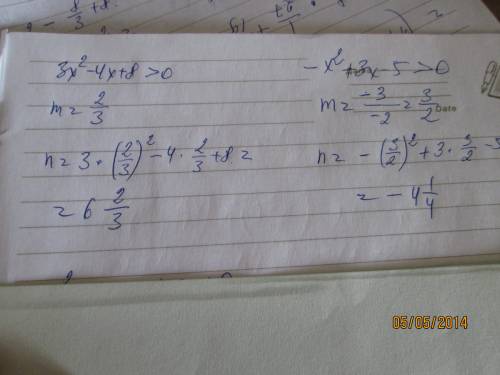 3x² - 4x + 8 > 0
m = 2/3
n = 3 · (2/3)² - 4 · 2/3 + 8 =
= 6 2/3
- x² + 3x - 5 > 0
m = -3/-2 = 3/2
Date
n = - (3/2)² + 3 · 3/2 - 5
= - 4 1/4
05/05/2014